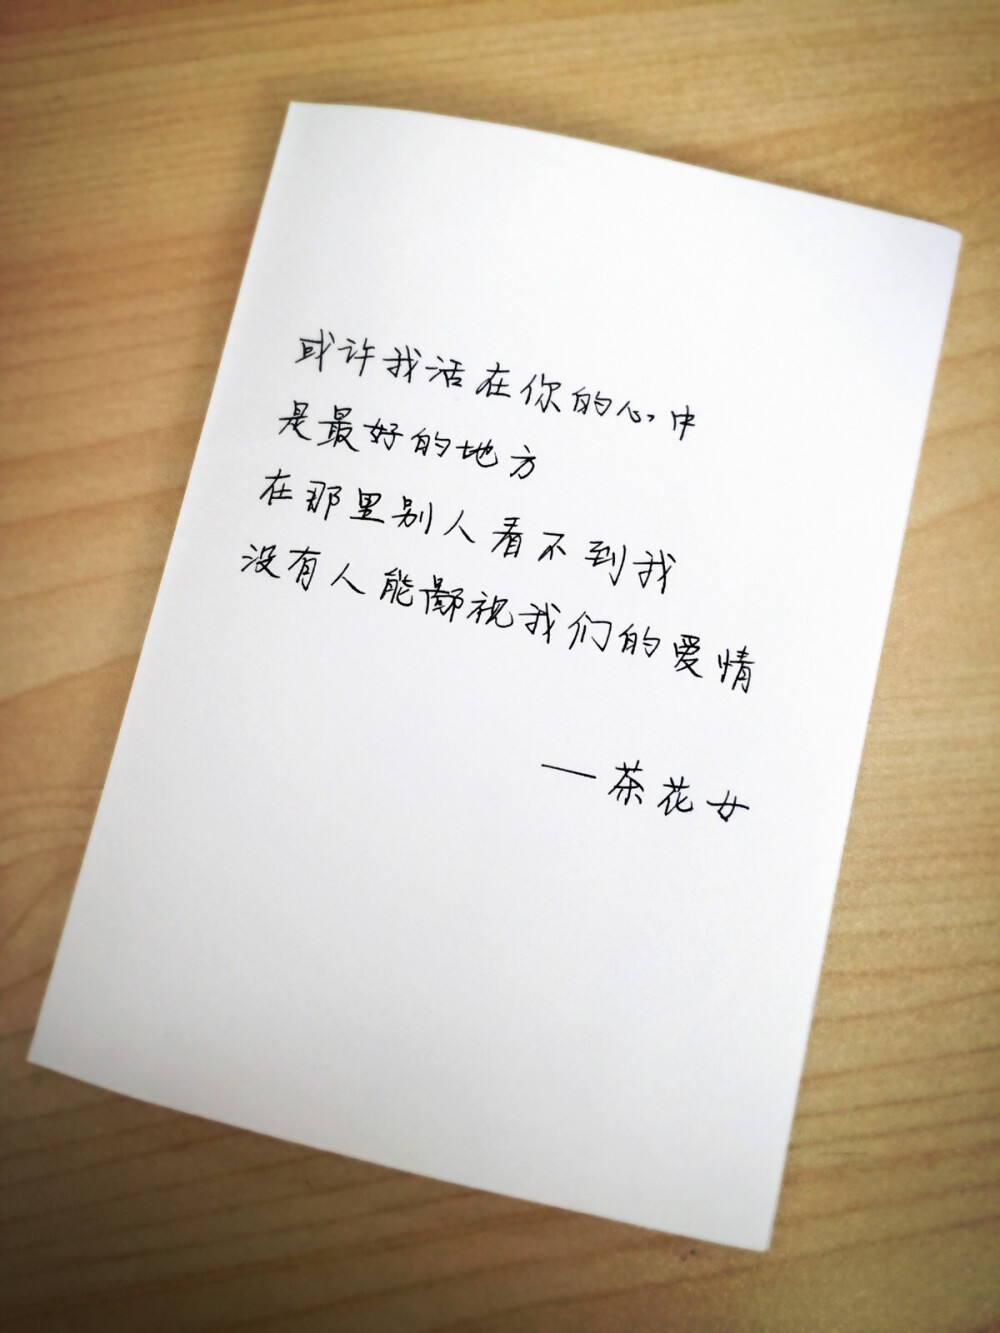 或许我活在你的心中
是最好的地方
在那里别人看不到我
没有人能鄙视我们的爱情
——茶花女